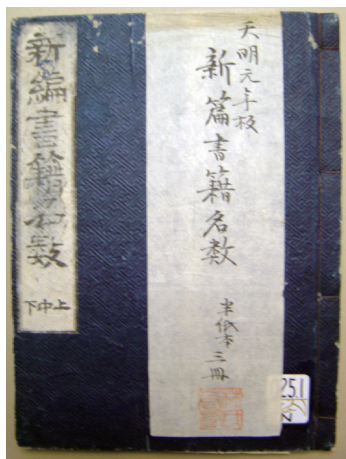 天明元年板
新篇書籍名数
半紙本三冊
新編書籍名数
上中下
25.1
N